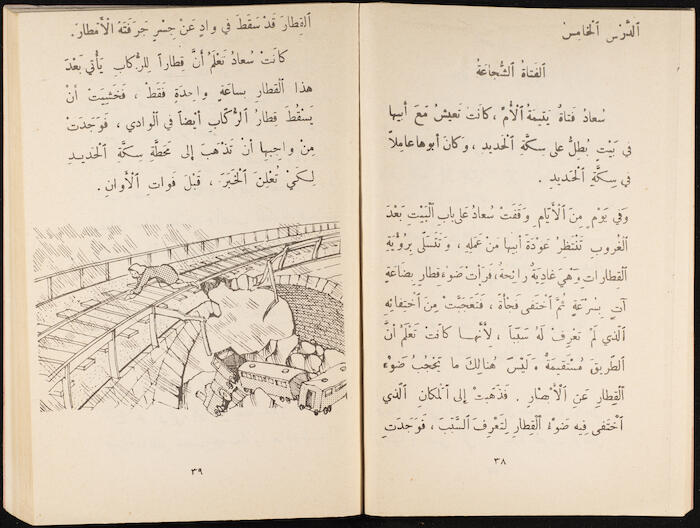 الدَّرْسُ الْخَامِسُ
الفَتَاةُ الشُّجَاعَةُ
سُعَادُ فَتَاةٌ يَتِيمَةُ الْأُمِّ، كَانَتْ تَعِيشُ مَعَ أَبِيهَا
فِي بَيْتٍ يُطِلُّ عَلى سِكَّةِ الْحَديدِ، وَكَانَ أَبُوهَا عَامِلاً
فِي سِكَّةِ الْحَدِيدِ.
وَفِي يَوْمٍ مِنَ الْأَيَّامِ وَقَفَتْ سُعَادُ عَلى بابِ الْبَيْتِ بَعْدَ
الْغُرُوبِ تَنْتَظِرُ عَوْدَةَ أَبِيهَا مِنْ عَمَلِهِ، وَتَتَسَلَّى بِرُؤْيَةِ
الْقِطَارَاتِ وَهْيَ غَادِيَةٌ رائِحَةٌ، فَرَأَتْ ضَوْءَ قِطارِ بِضَاعَةٍ
آتٍ بِسُرْعَةٍ ثُمَّ اخْتَفى فَجْأَةً، فَتَعَجَّبَتْ مِنَ اخْتِفائِهِ
الَّذِي لَمْ تَعْرِفْ لَهُ سَبَباً، لِأَنَّهَا كَانَتْ تَعْلَمُ أَنَّ
الطَّرِيقَ مُسْتَقِيمَةٌ وَلَيْسَ هُنَالِكَ مَا يَحْجُبُ ضَوْءَ
الْقِطَارِ عَنِ الْأَبْصَارِ. فَذَهَبَتْ إِلَى الْمَكَانِ الَّذِي
اخْتَفى فِيهِ ضَوْءُ الْقِطَارِ لِتَعْرِفَ السَّبَبَ، فَوَجَدَتِ
٣٨
الْقِطارَ قَدْ سَقَطَ فِي وادٍ عَنْ جِسْرٍ جَرَفَتْهُ الْأَمْطَارُ.
كَانَتْ سُعادُ تَعْلَمُ أَنَّ قِطَاراً لِلرُّكَّابِ يَأْتِي بَعْدَ
هذا الْقِطَارِ بِسَاعَةٍ واحِدَةٍ فَقَطْ، فَخَشِيَتْ أَنْ
يَسْقُطَ قِطَارُ الرُّكَّابِ أَيْضاً فِي الْوَادِي، فَوَجَدَتْ
مِنْ وَاجِبِهَا أَنْ تَذْهَبَ إِلى مَحَطَّةِ سِكَّةِ الْحَدِيدِ
لِكَيْ تُعْلِنَ الْخَبَرَ، قَبْلَ فَوَاتِ الْأَوانِ.
٣٩